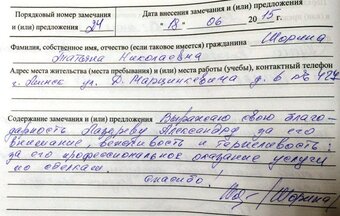 Порядковый номер замечания и (или) предложения 24
Дата внесения замечания и (или) предложения "18" 06 2015 г.
Фамилия, собственное имя, отчество (если таковое имеется) гражданина Шорина
Татьяна Николаевна
Адрес места жительства (места пребывания) и (или) места работы (учебы), контактный телефон
г. Минск ул. Д. Марцинкевича д. 6
Содержание замечания и (или) предложения Выражаю свою благо-
дарность Лазареву Александру за его
внимание, вежливость и терпеливость;
за его профессиональное оказание услуги
по
Спасибо.
/Шорина/